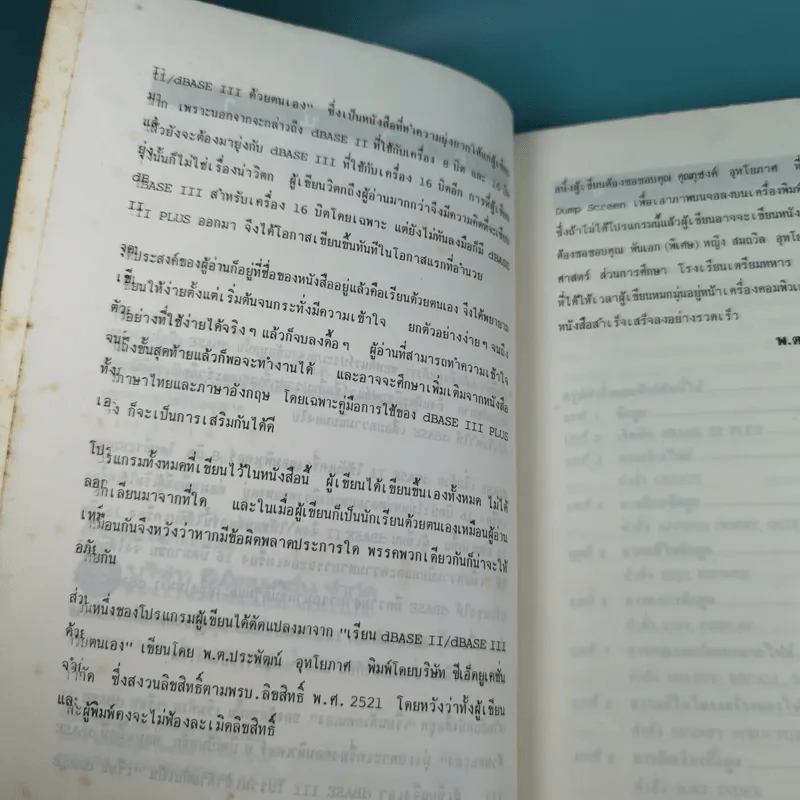 II/dBASE III ด้วยตนเอง" ซึ่งเป็นหนังสือที่ทำความยุ่งยากให้แก่ผู้เขียน
มาก เพราะนอกจากจะกล่าวถึง dBASE II ที่ใช้กับเครื่อง 8 บิต และ 16 บิต
แล้วยังจะต้องมายุ่งกับ dBASE III ที่ใช้กับเครื่อง 16 บิตอีก การที่ผู้เขียน
ยุ่งนั้นก็ไม่ใช่เรื่องน่าวิตก ผู้เขียนวิตกถึงผู้อ่านมากกว่าจึงมีความคิดที่จะเขียน
dBASE III สำหรับเครื่อง 16 บิตโดยเฉพาะ แต่ยังไม่ทันลงมือก็มี dBASE
III PLUS ออกมา จึงได้โอกาสเขียนขึ้นทันทีในโอกาสแรกที่อำนวย
จุดประสงค์ของผู้อ่านก็อยู่ที่ชื่อของหนังสืออยู่แล้วคือเรียนด้วยตนเอง จึงได้พยายาม
เขียนให้ง่ายตั้งแต่เริ่มต้นจนกระทั่งมีความเข้าใจ ยกตัวอย่างง่ายๆจนถึง
ตัวอย่างที่ใช้ง่ายได้จริงๆแล้วก็จบลงดื้อๆ ผู้อ่านที่สามารถทำความเข้าใจ
จนถึงขั้นสุดท้ายแล้วก็พอจะทำงานได้ และอาจจะศึกษาเพิ่มเติมจากหนังสือ
ทั้งภาษาไทยและภาษาอังกฤษ โดยเฉพาะคู่มือการใช้ของ dBASE III PLUS
เอง ก็จะเป็นการเสริมกันได้ดี
โปรแกรมทั้งหมดที่เขียนไว้ในหนังสือนี้ ผู้เขียนได้เขียนขึ้นเองทั้งหมด ไม่ได้
ลอกเลียนมาจากที่ใด และในเมื่อผู้เขียนก็เป็นนักเรียนด้วยตนเองเหมือนผู้อ่าน
เหมือนกันจึงหวังว่าหากมีข้อผิดพลาดประการใด พรรคพวกเดียวกันก็น่าจะให้
อภัยกัน
ส่วนหนึ่งของโปรแกรมผู้เขียนได้ดัดแปลงมาจาก "เรียน dBASE II/dBASE III
ด้วยตนเอง" เขียนโดย พ.ต.ประพัฒน์ อุทโยภาศ พิมพ์โดยบริษัท ซีเอ็ดยูเคชั่น
จำกัด ซึ่งสงวนลิขสิทธิ์ตามพรบ.ลิขสิทธิ์ พ.ศ. 2521 โดยหวังว่าทั้งผู้เขียน
และผู้พิมพ์คงจะไม่ฟ้องละเมิดลิขสิทธิ์
อนึ่งผู้เขียนต้องขอขอบคุณ คุณภุชงค์ อุทโยภาศ ที่
Dump Screen เพื่อเอาภาพบนจอลงบนเครื่องพิมพ์
ซึ่งถ้าไม่ได้โปรแกรมนี้แล้วผู้เขียนอาจจะเขียนหนัง
ต้องขอขอบคุณ พันเอก (พิเศษ) หญิง สมถวิล อุทโย
ศาสตร์ ส่วนการศึกษา โรงเรียนเตรียมทหาร
ที่ได้ให้เวลาผู้เขียนหมกมุ่นอยู่หน้าเครื่องคอมพิวเ
หนังสือสำเร็จเสร็จลงอย่างรวดเร็ว
พ.ต